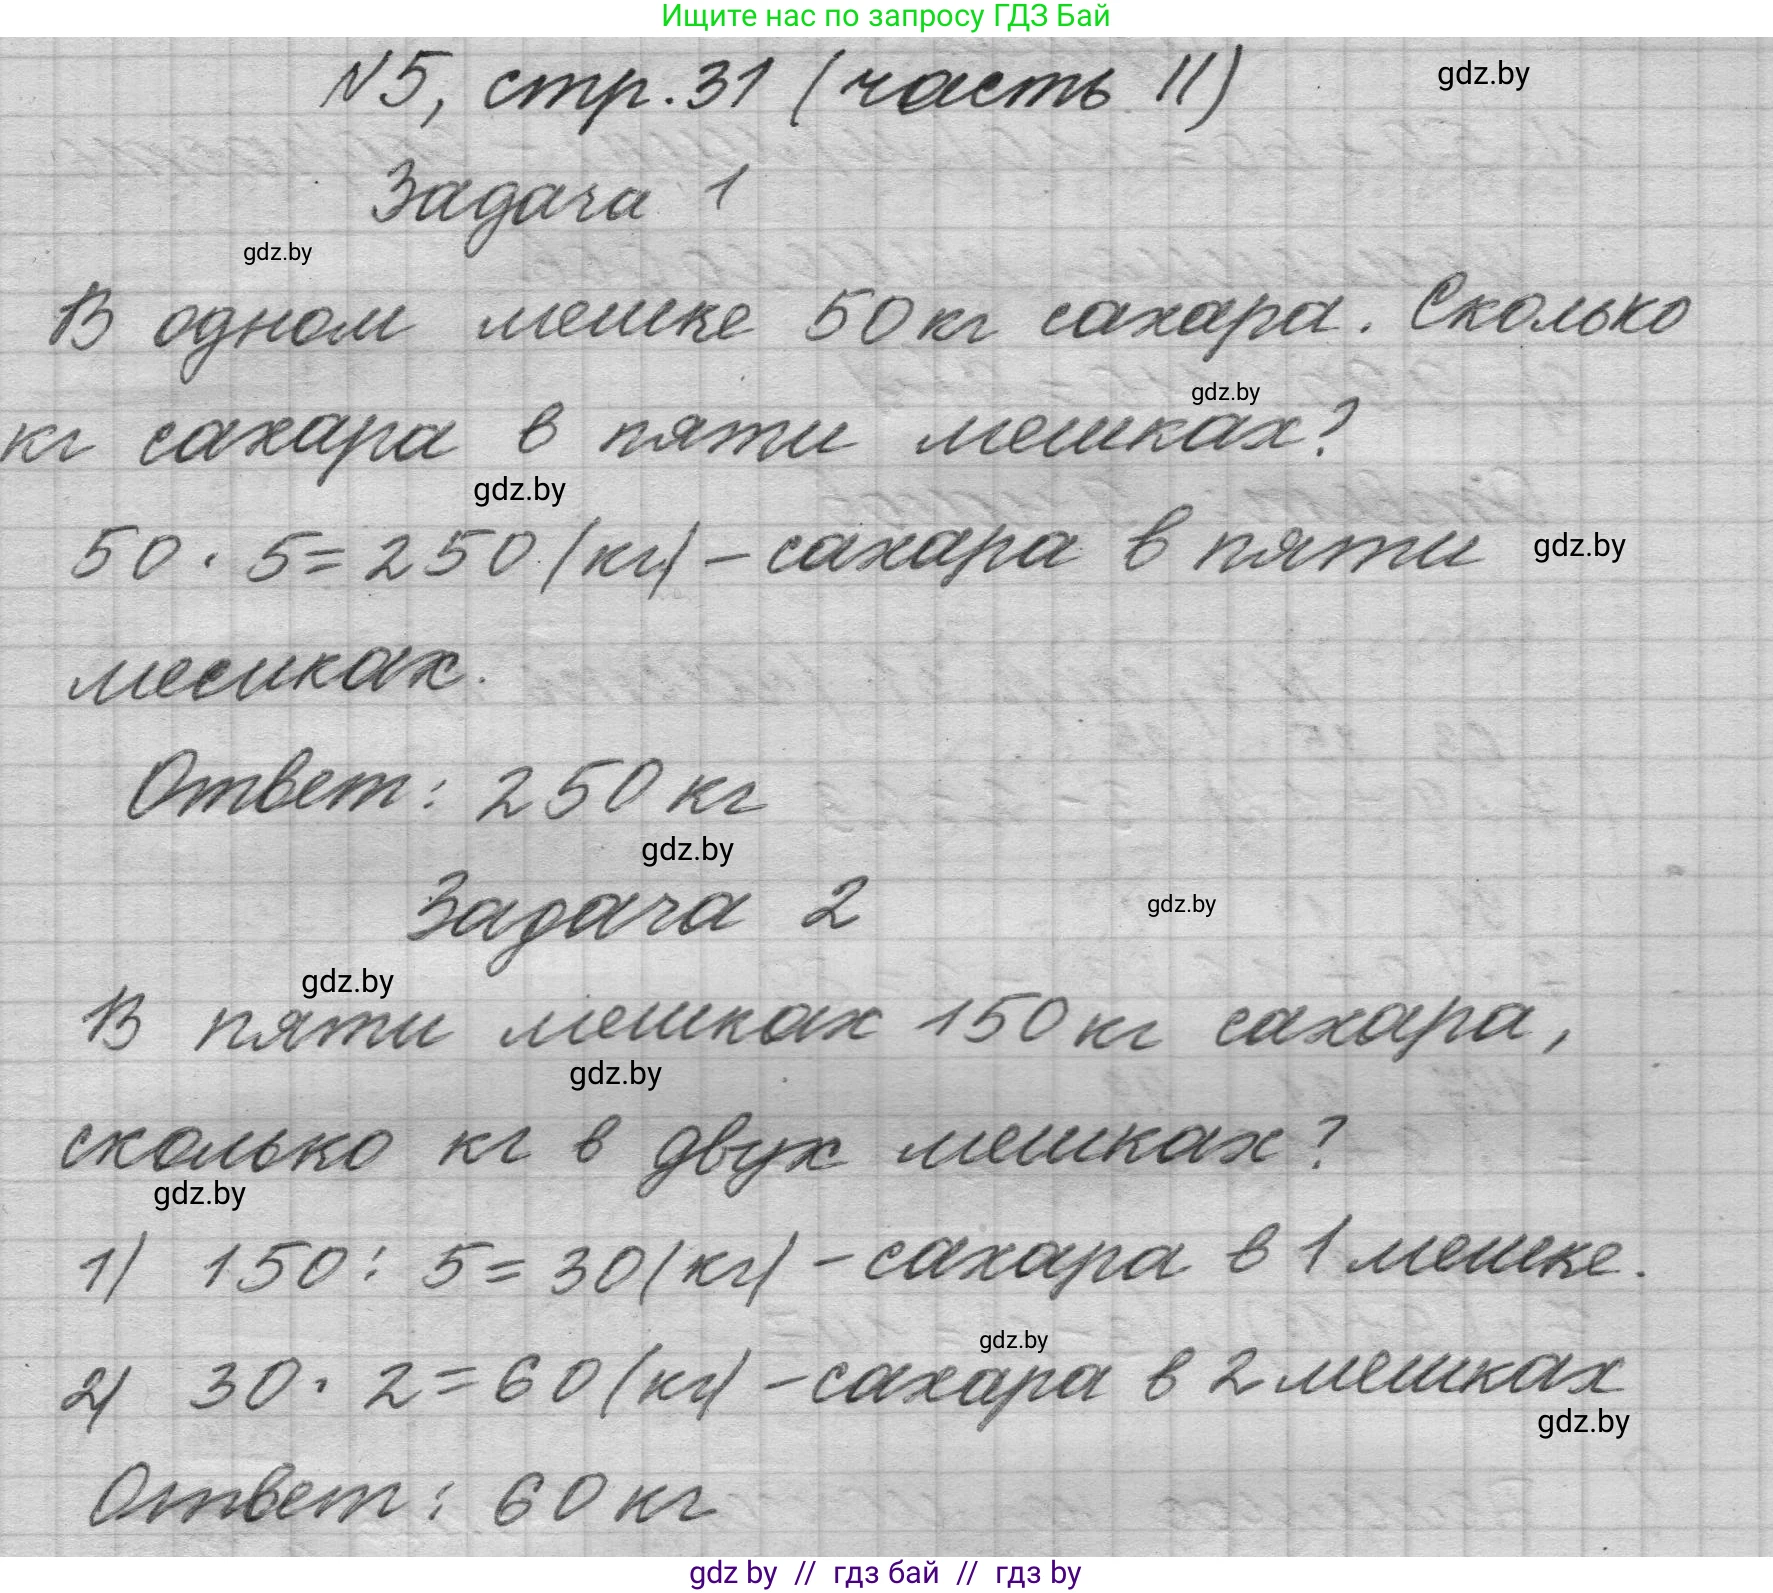 Ищите нас по запросу ГДЗ Бай
N5, стр. 31 (часть II)
gdz.by
Задача 1
gdz.by
В одном мешке 50 кг сахара. Сколько
gdz.by
кг сахара в пяти мешках?
gdz.by
50 · 5 = 250 (кг) – сахара в пяти
gdz.by
мешках.
Ответ: 250 кг
gdz.by
Задача 2
gdz.by
gdz.by
В пяти мешках 150 кг сахара,
gdz.by
сколько кг в двух мешках?
gdz.by
1) 150 : 5 = 30 (кг) – сахара в 1 мешке.
gdz.by
2) 30 · 2 = 60 (кг) – сахара в 2 мешках
gdz.by
Ответ: 60 кг
gdz by // гдз бай // гдз by